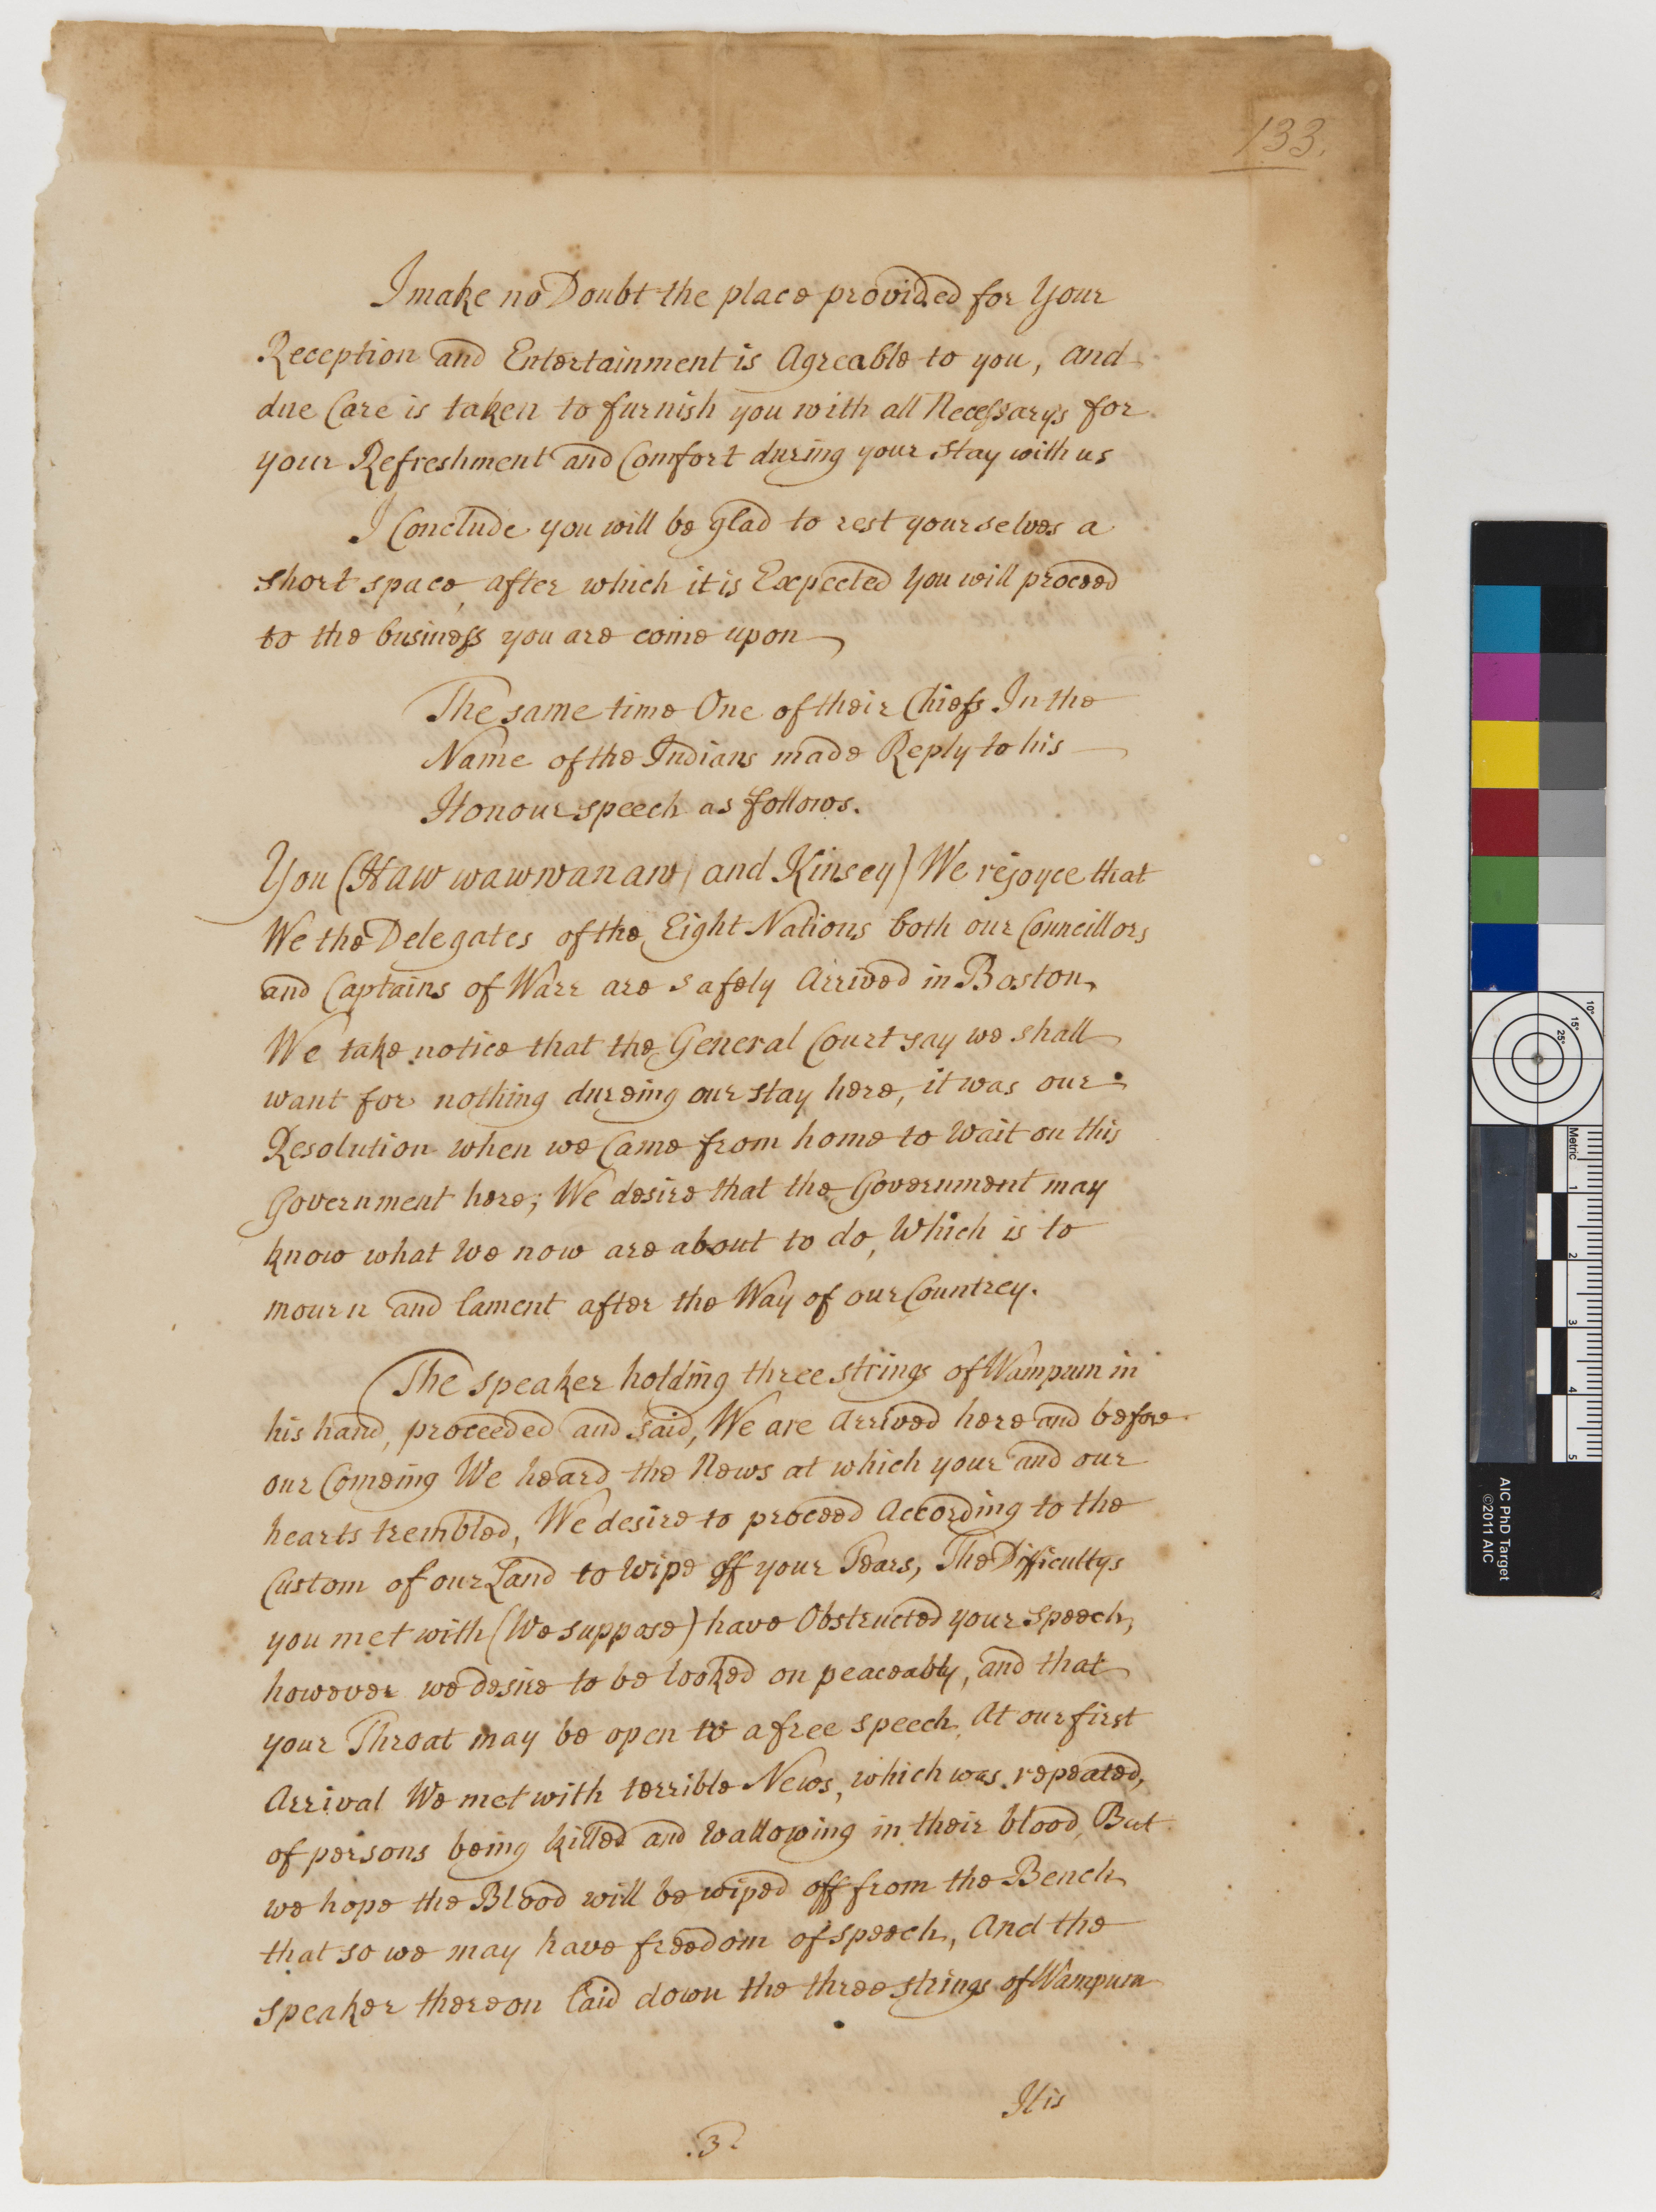 133.
I make no Doubt the place provided for Your
Reception and Entertainment is Agreable to you, and
due Care is taken to furnish you with all Necessarys for
your Refreshment and Comfort during your stay with us
I Conclude you will be glad to rest yourselves a
short space, after which it is Expected you will proceed
to the business you are come upon
The same time One of their Chiefs In the
Name of the Indians made Reply to his
Honour speech as follows.
You (Hawwawwanaw and Kinsey) We rejoyce that
We the Delegates of the Eight Nations both our Councillors
and Captains of Warr are safely Arrived in Boston,
We take notice that the General Court say we shall
want for nothing dureing our stay here, it was our
Resolution when we Came from home to Wait on this
Government here; We desire that the Government may
know what We now are about to do, Which is to
mourn and lament after the Way of our Countrey.
The speaker holding three strings of Wampum in
his hand, proceeded and said, We are Arrived here and before
our Comeing We heard the News at which your and our
hearts trembled, We desire to proceed According to the
Custom of our Land to Wipe off your Tears, The Difficultys
you met with (We suppose) have Obstructed your speech,
however we desire to be looked on peaceably, and that
your Throat may be open to a free speech. At our first
Arrival We met with terrible News, which was repeated,
of persons being killed and Wallowing in their blood, But
we hope the Blood will be wiped off from the Bench
that so we may have freedom of speech, And the
speaker thereon laid down the three strings of Wampum
His
.3.
10°
15°
25°
Metric
1
2
3
4
5
AIC PhD Target
©2011 AIC